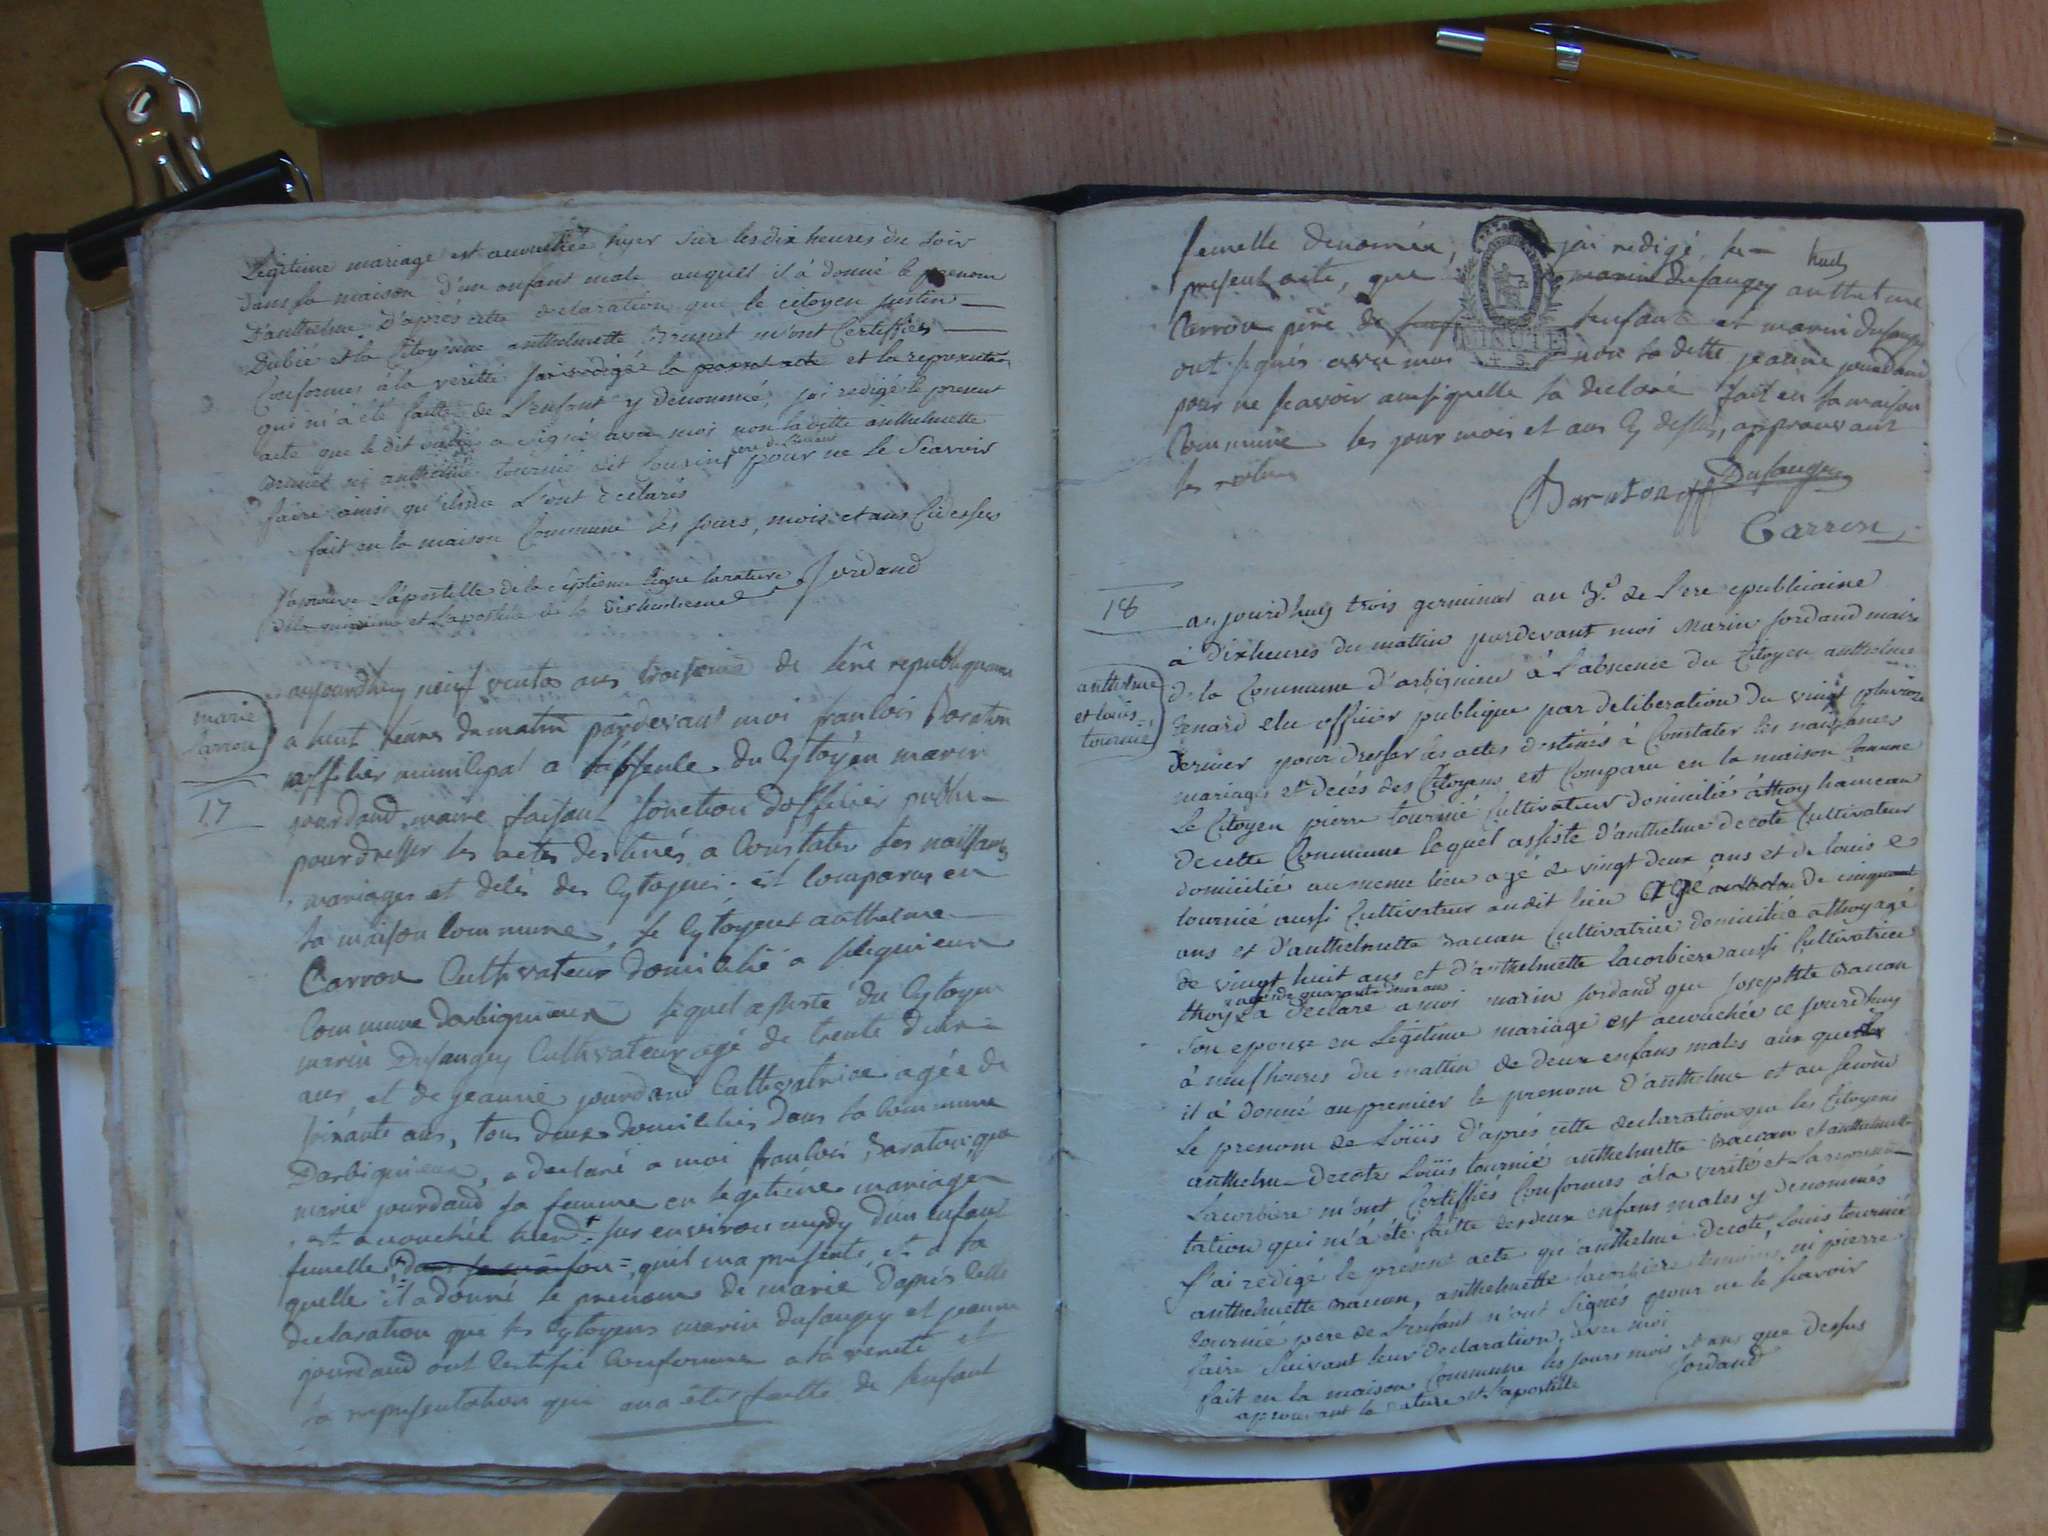 Légitime mariage est accouchée hyer sur les dix heures du soir
dans sa maison d'un enfant male auquel il à donné le prenom
d'anthelme d'après cette declaration que le citoyen justin
Dubié et la Citoyenne anthelmette Brunet m'ont Certiffiés
Conformes à la verité j'ai redigé le present acte et la representation
qui m'à été faitte de L'enfant y denommé, j'ai redigé le present
acte que le dit a signé avec moi non ladite anthelmette
Brunet ni anthelme tournié pour ne le Scavoir
faire ainsi qu'ils L'ont declarés
fait en la maison Commune les jours, mois et ans Cidessus
j'approuve L'apostille de la septieme ligne la rature Jordand
et L'apostille de la
marie
Carron
17
aujourdhuy neuf ventos ans troisieme de lère republiquenne
a huit heures du matin pardevant moi francois Baraton
officier municipal a l'absence du Cytoyen marin
jourdand maire faisant fonction d'officier public
pour dresser les actes destinés a Constater les naissances
mariages et décès des Cytoyens est comparus en
la maison commune, le Cytoyens anthelme
Carron Cultivateur domicilié a
Commune darbignieux lequel assisté du Cytoyen
marin Dufaugey Cultivateur agé de trente deux
ans, et de jeanne jourdand Cultivatrice agée de
soixante ans, tous deux domiciliés dans la commune
Darbignieux, a déclaré a moi francois Baraton, que
marie jourdand sa femme en legitime mariage
est accouchée hier sur environ mydy d'un enfant
femelle dans sa maison, quil ma présenté et a la
quelle il a donné le prenom de marie d'après cette
declaration que les Cytoyens marin dufaugey et jeanne
jourdand ont certifié Conforme a la verité et
la représentation qui ma été faitte de lenfant
femelle denomée, j'ai redigé le
present acte, que marin Dufaugey anthelme
Carron père de l'enfant et marin Dufaugey
ont signés avec moi non la dette jeanne jourdand
pour ne scavoir ainsi quelle la declaré fait en la maison
Commune les jour mois et ans cy dessus, approuvant
les
MINUTE
Baraton off Dufaugey
Carron
18
anthelme
et louis
tournié
aujourdhuy trois germinal an 3.e de L'ere republicaine
à dix heures du mattin pardevant moi Marin Jordand maire
de la Commune d'arbignieu à L'absence du Citoyen anthelme
tenard elu officier publique par deliberation du vingt pluviose
dernier pour dresser les actes destinés à Constater les naissances
mariages et decès des Citoyens est Comparu en la maison Comune
Le Citoyen pierre tournié Cultivateur domicilié à thoy hameau
de cette Commune lequel assisté d'anthelme decote Cultivateur
domicilié au meme lieu agé de vingt deux ans et de louis
tournié aussi Cultivateur audit lieu agé de cinquant
ans et d'anthelmette Baccan Cultivatrice domiciliée a thoy agé
de vingt huit ans et d'anthelmette lacorbiere aussi Cultivatrice
agée de quarante deux ans
thoy a declaré a moi marin Jordand que Josephte Baccan
son epouse en Légitime mariage est accouchée ce jourdhuy
à neuf heures du mattin de deux enfans males aux quels
il à donné au premier le prenom d'anthelme et au second
Le prenom de Loüis d'après cette declaration que les Citoyens
anthelme decote Loüis tournié anthelmette Baccan et anthelmette
Lacorbiere m'ont Certiffiés Conformes à la verité et La represen
tation qui m'à été faitte des deux enfans males y denommés
J'ai redigé le present acte qu'anthelme decote, Louis tournié
anthelmette Baccan, anthelmette lacorbiere temoins ni pierre
tournié pere de L'enfant n'ont Signés pour ne le scavoir
faire Suivant leur declaration, avec moi
fait en la maison Commune les jours mois et ans que dessus
approuvant la rature et L'apostille Jordand